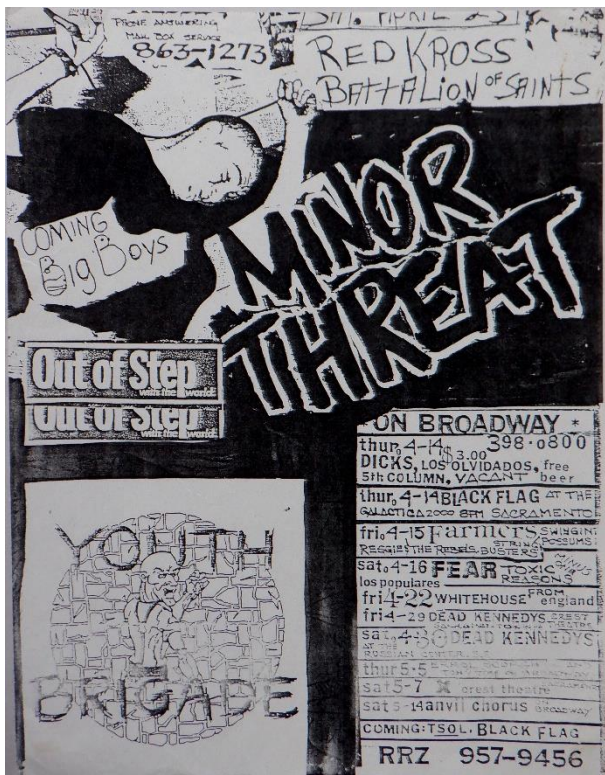 PHONE ANSWERING
MAIL BOX SERVICE
863-1273
SAT. APRIL 23
RED KROSS
BATTALION OF SAINTS
MINOR
THREAT
COMING
Big Boys
Out of Step
with the world
Out of Step
with the world
YOUTH
BRIGADE
ON BROADWAY *
thur. 4-14 $3.00 398-0800
DICKS, LOS OLVIDADOS, free
5th COLUMN, VACANT beer
thur. 4-14 BLACK FLAG AT THE
GALACTICA 2000 8PM SACRAMENTO
fri. 4-15 Farmers SWINGIN
STRING POSSUMS
REGGIE & THE REBELS, BUSTERS
sat. 4-16 FEAR TOXIC
REASONS
los populares
fri 4-22 WHITEHOUSE FROM england
fri 4-29 DEAD KENNEDYS
sat. 4-30 DEAD KENNEDYS
AT THE
RUSSIAN CENTER
thur 5-5
sat 5-7 X crest theatre
sat 5-14 anvil chorus BROADWAY
COMING: TSOL, BLACK FLAG
RRZ 957-9456